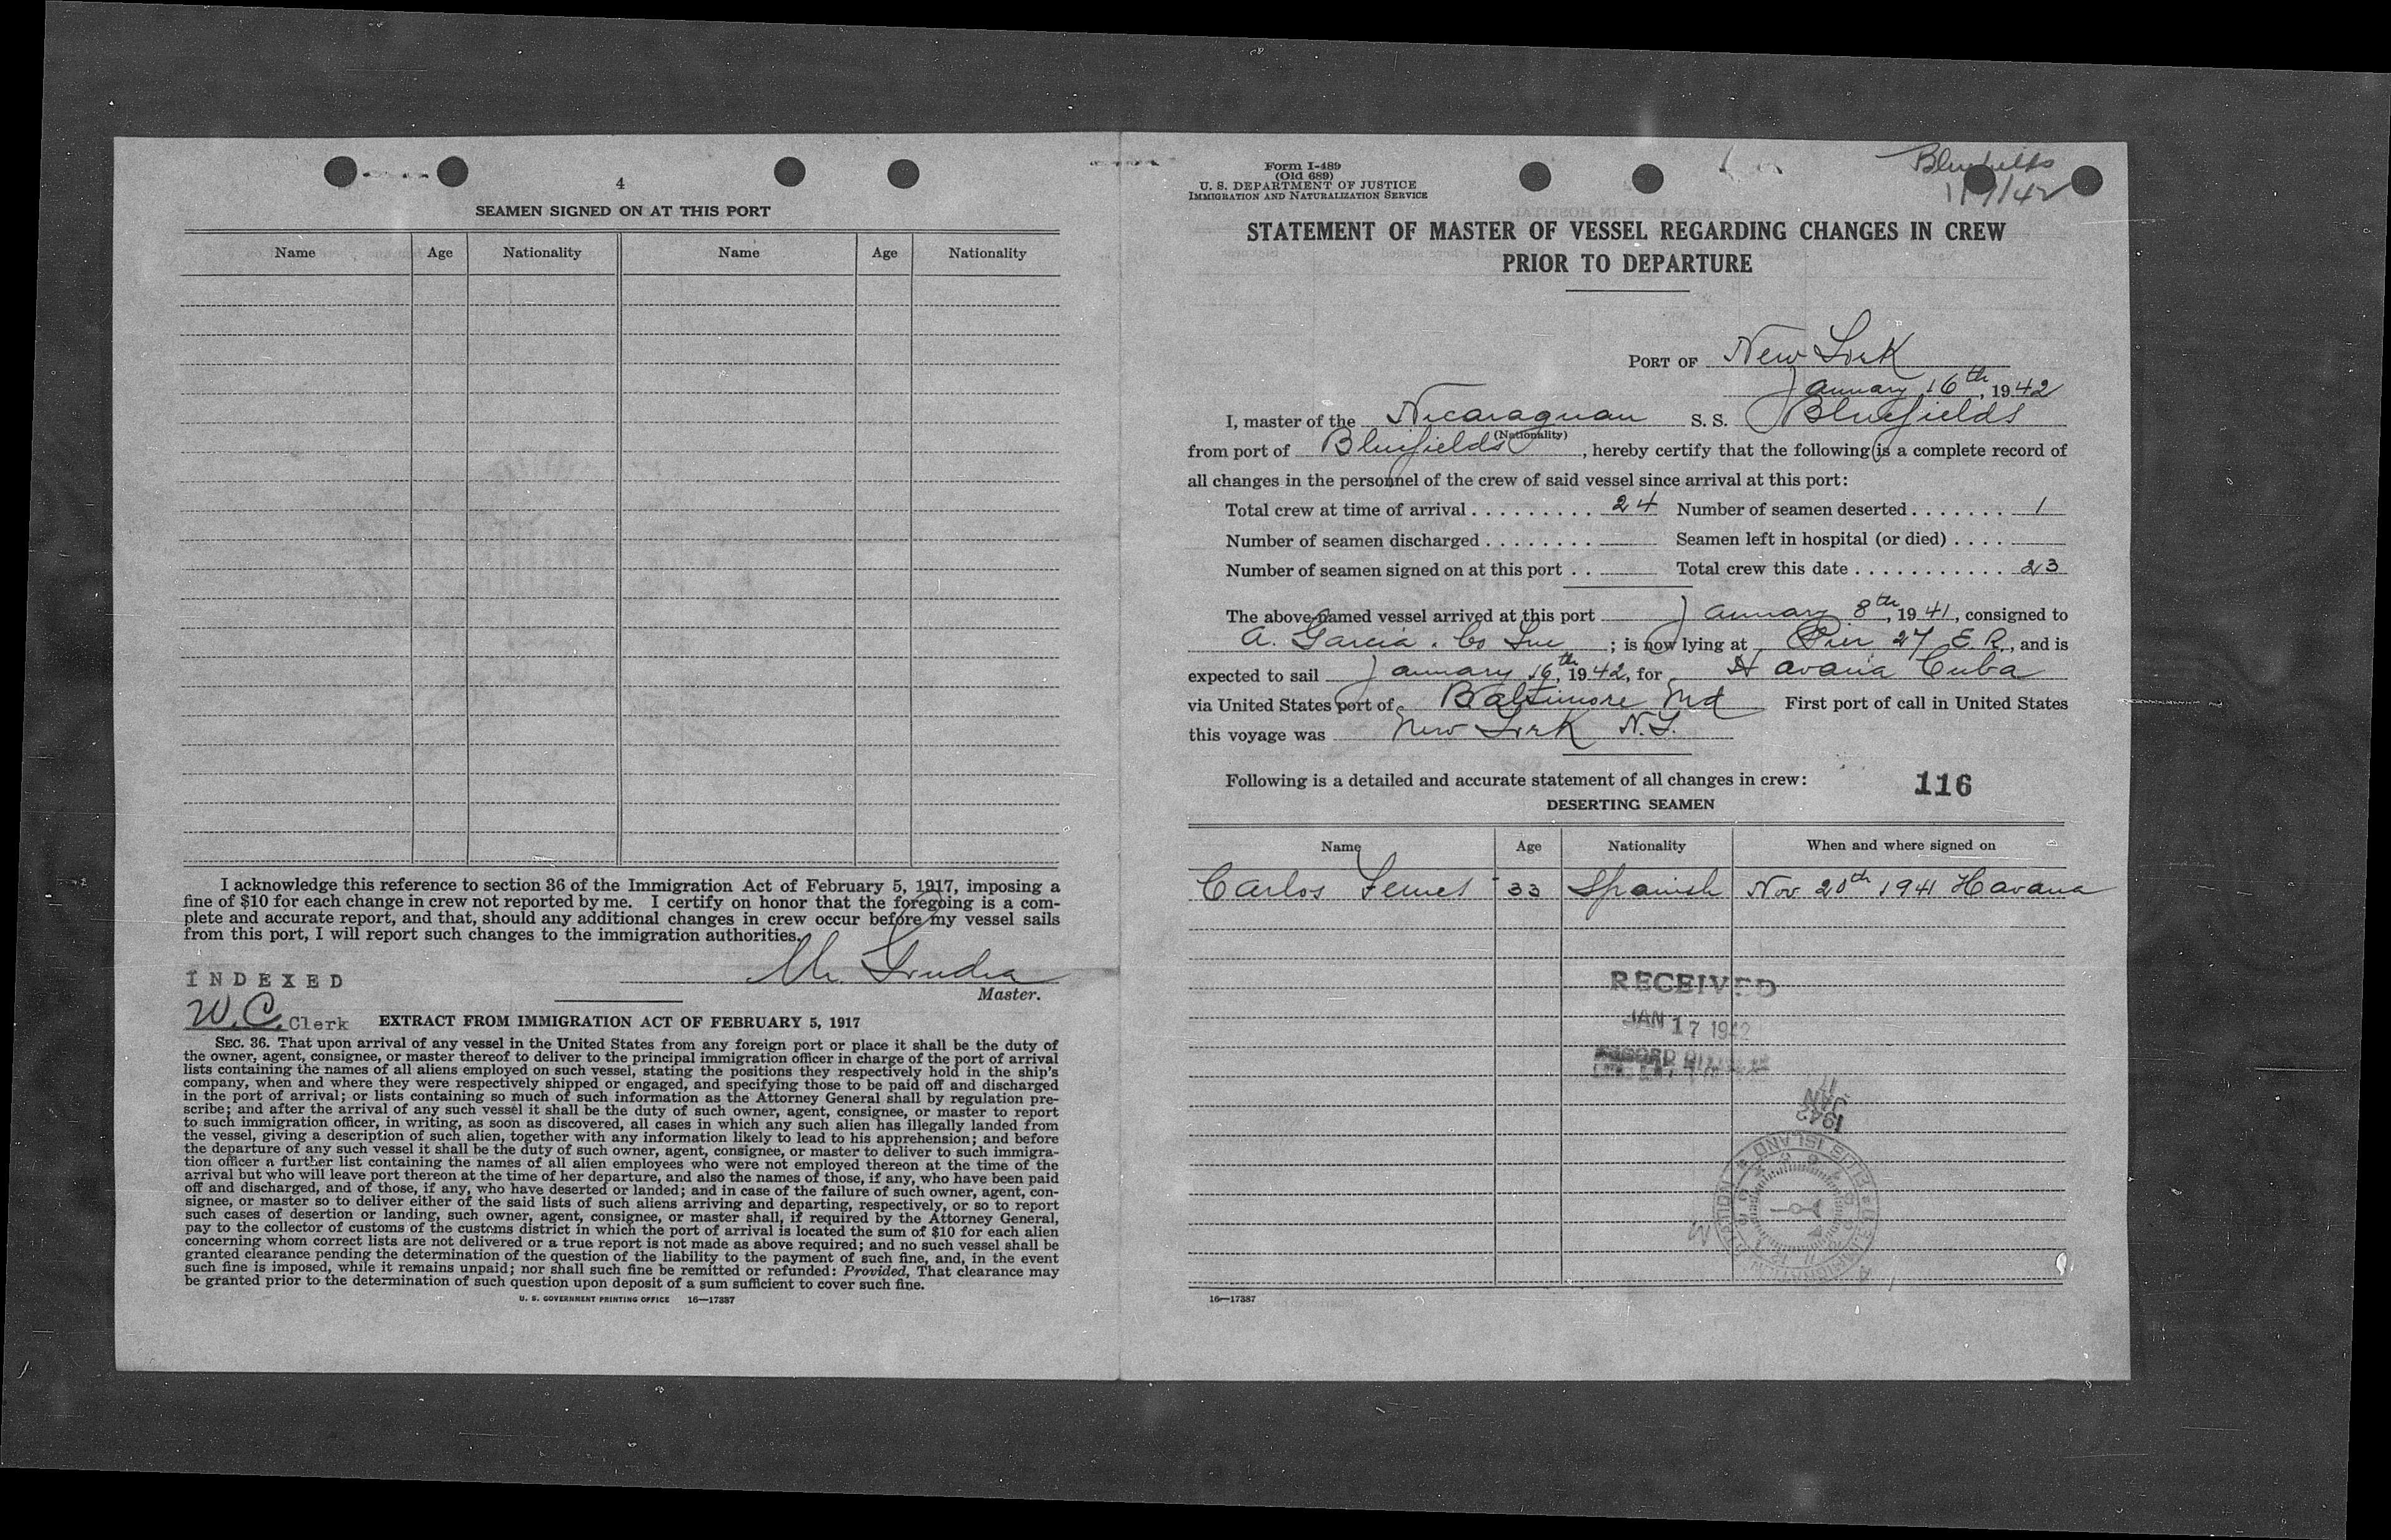 4
SEAMEN SIGNED ON AT THIS PORT
Name Age Nationality Name Age Nationality
I acknowledge this reference to section 36 of the Immigration Act of February 5, 1917, imposing a
fine of $10 for each change in crew not reported by me. I certify on honor that the foregoing is a com-
plete and accurate report, and that, should any additional changes in crew occur before my vessel sails
from this port, I will report such changes to the immigration authorities.
Master.
INDEXED
W.C. Clerk
EXTRACT FROM IMMIGRATION ACT OF FEBRUARY 5, 1917
SEC. 36. That upon arrival of any vessel in the United States from any foreign port or place it shall be the duty of
the owner, agent, consignee, or master thereof to deliver to the principal immigration officer in charge of the port of arrival
lists containing the names of all aliens employed on such vessel, stating the positions they respectively hold in the ship's
company, when and where they were respectively shipped or engaged, and specifying those to be paid off and discharged
in the port of arrival; or lists containing so much of such information as the Attorney General shall by regulation pre-
scribe; and after the arrival of any such vessel it shall be the duty of such owner, agent, consignee, or master to report
to such immigration officer, in writing, as soon as discovered, all cases in which any such alien has illegally landed from
the vessel, giving a description of such alien, together with any information likely to lead to his apprehension; and before
the departure of any such vessel it shall be the duty of such owner, agent, consignee, or master to deliver to such immigra-
tion officer a further list containing the names of all alien employees who were not employed thereon at the time of the
arrival but who will leave port thereon at the time of her departure, and also the names of those, if any, who have been paid
off and discharged, and of those, if any, who have deserted or landed; and in case of the failure of such owner, agent, con-
signee, or master so to deliver either of the said lists of such aliens arriving and departing, respectively, or so to report
such cases of desertion or landing, such owner, agent, consignee, or master shall, if required by the Attorney General,
pay to the collector of customs of the customs district in which the port of arrival is located the sum of $10 for each alien
concerning whom correct lists are not delivered or a true report is not made as above required; and no such vessel shall be
granted clearance pending the determination of the question of the liability to the payment of such fine, and, in the event
such fine is imposed, while it remains unpaid; nor shall such fine be remitted or refunded: Provided, That clearance may
be granted prior to the determination of such question upon deposit of a sum sufficient to cover such fine.
U. S. GOVERNMENT PRINTING OFFICE 16—17387
Form I-489
(Old 689)
U. S. DEPARTMENT OF JUSTICE
IMMIGRATION AND NATURALIZATION SERVICE
Bluefields
STATEMENT OF MASTER OF VESSEL REGARDING CHANGES IN CREW
PRIOR TO DEPARTURE
PORT OF New York
January 16th, 1942
I, master of the Nicaraguan S. S. Bluefields
(Nationality)
from port of Bluefields, hereby certify that the following is a complete record of
all changes in the personnel of the crew of said vessel since arrival at this port:
Total crew at time of arrival . . . . . . . . . 24 Number of seamen deserted . . . . . . . 1
Number of seamen discharged . . . . . . . . Seamen left in hospital (or died) . . . .
Number of seamen signed on at this port . . Total crew this date . . . . . . . . . . . 23
The above-named vessel arrived at this port January 8th, 1941, consigned to
A. Garcia. Co Inc ; is now lying at Pier 27 E. R., and is
expected to sail January 16th, 1942, for Havana Cuba
via United States port of Baltimore Md First port of call in United States
this voyage was New York N.Y.
Following is a detailed and accurate statement of all changes in crew:
116
DESERTING SEAMEN
Name Age Nationality When and where signed on
Carlos 33 Spanish Nov 20th 1941 Havana
RECEIVED
JAN 17 1942
17
JAN
1942
ELLIS ISLAND
16—17387